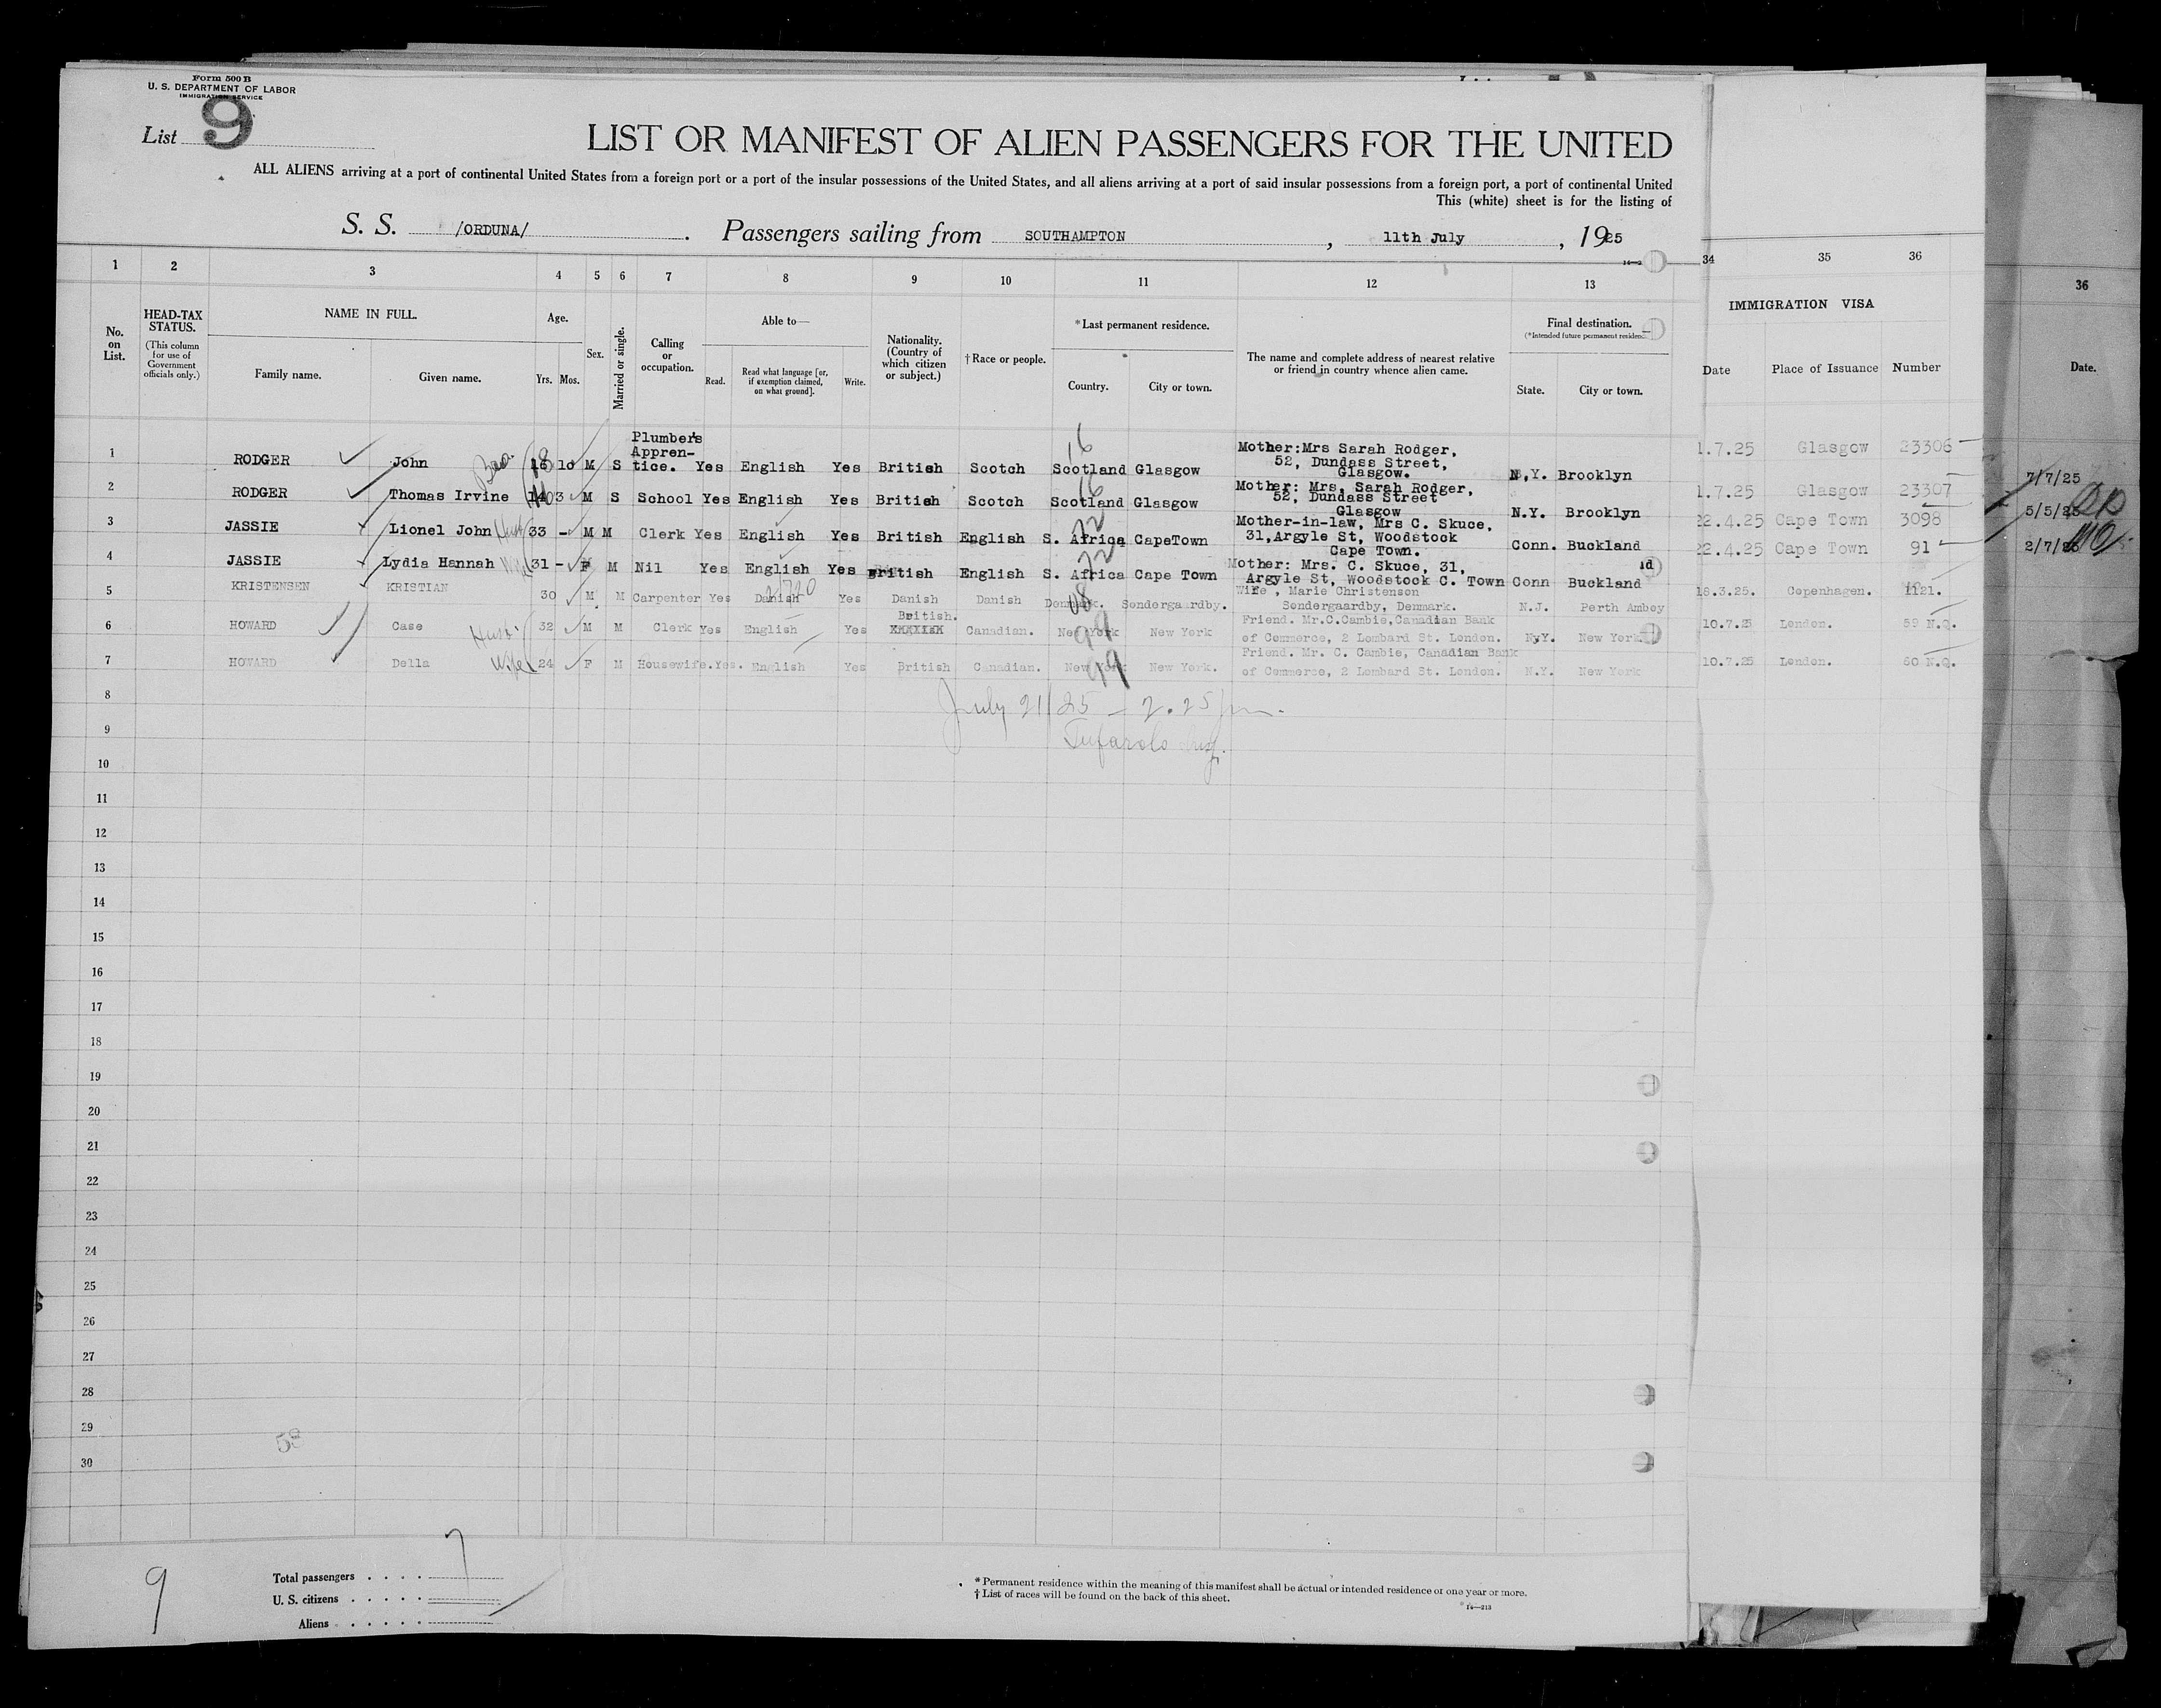 Form 500 B
U. S. DEPARTMENT OF LABOR
IMMIGRATION SERVICE
List 9
LIST OR MANIFEST OF ALIEN PASSENGERS FOR THE UNITED
ALL ALIENS arriving at a port of continental United States from a foreign port or a port of the insular possessions of the United States, and all aliens arriving at a port of said insular possessions from a foreign port, a port of continental United
This (white) sheet is for the listing of
S. S. /ORDUNA/ . Passengers sailing from SOUTHAMPTON , 11th July , 1925
1 2 3 4 5 6 7 8 9 10 11 12 13 34 35 36 36
No. on List.
HEAD-TAX STATUS. (This column for use of Government officials only.)
NAME IN FULL.
Family name. Given name.
Age.
Yrs. Mos.
Sex.
Married or single.
Calling or occupation.
Able to—
Read. Read what language [or, if exemption claimed, on what ground]. Write.
Nationality. (Country of which citizen or subject.)
† Race or people.
*Last permanent residence.
Country. City or town.
The name and complete address of nearest relative or friend in country whence alien came.
Final destination.
(*Intended future permanent residence
State. City or town.
IMMIGRATION VISA
Date Place of Issuance Number
Date.
1 RODGER John Bro. 10 M S Plumber's Appren- tice. Yes English Yes British Scotch Scotland Glasgow 16 Mother:Mrs Sarah Rodger, 52, Dundass Street, Glasgow. N.Y. Brooklyn 1.7.25 Glasgow 23306
2 RODGER Thomas Irvine 14 3 M S School Yes English Yes British Scotch Scotland Glasgow 16 Mother: Mrs, Sarah Rodger, 52, Dundass Street Glasgow N.Y. Brooklyn 1.7.25 Glasgow 23307
7/7/25
3 JASSIE Lionel John Husb 33 - M M Clerk Yes English Yes British English S. Africa CapeTown 72 Mother-in-law, Mrs C. Skuce, 31,Argyle St, Woodstock Cape Town. Conn. Buckland 22.4.25 Cape Town 3098
5/5/25
4 JASSIE Lydia Hannah Wife 31 - F M Nil Yes English Yes British English S. Africa Cape Town 72 Mother: Mrs. C. Skuce, 31, Argyle St, Woodstock C. Town Conn Buckland 22.4.25 Cape Town 91
2/7/25
5 KRISTENSEN KRISTIAN 30 M M Carpenter Yes Danish Yes Danish Danish Denmark. Sondergaardby. 08 Wife, Marie Christenson Sondergaardby, Denmark. N.J. Perth Amboy 18.3.25. Copenhagen. 1121.
6 HOWARD Case Husb. 32 M M Clerk Yes English Yes British. Canadian. New York New York 99 Friend. Mr.C.Cambie,Canadian Bank of Commerce, 2 Lombard St. London. N.Y. New York 10.7.25 London. 59 N.Q.
7 HOWARD Della Wife 24 F M Housewife. Yes. English Yes British Canadian. New York New York. 99 Friend. Mr. C. Cambie, Canadian Bank of Commerce, 2 Lombard St. London. N.Y. New York 10.7.25 London. 60 N.Q.
8
July 21/25 - 2.25 pm.
9
10
11
12
13
14
15
16
17
18
19
20
21
22
23
24
25
26
27
28
29
30
9
Total passengers . . . . 7
U. S. citizens . . . . .
Aliens . . . . .
* Permanent residence within the meaning of this manifest shall be actual or intended residence of one year or more.
† List of races will be found on the back of this sheet.
14—213